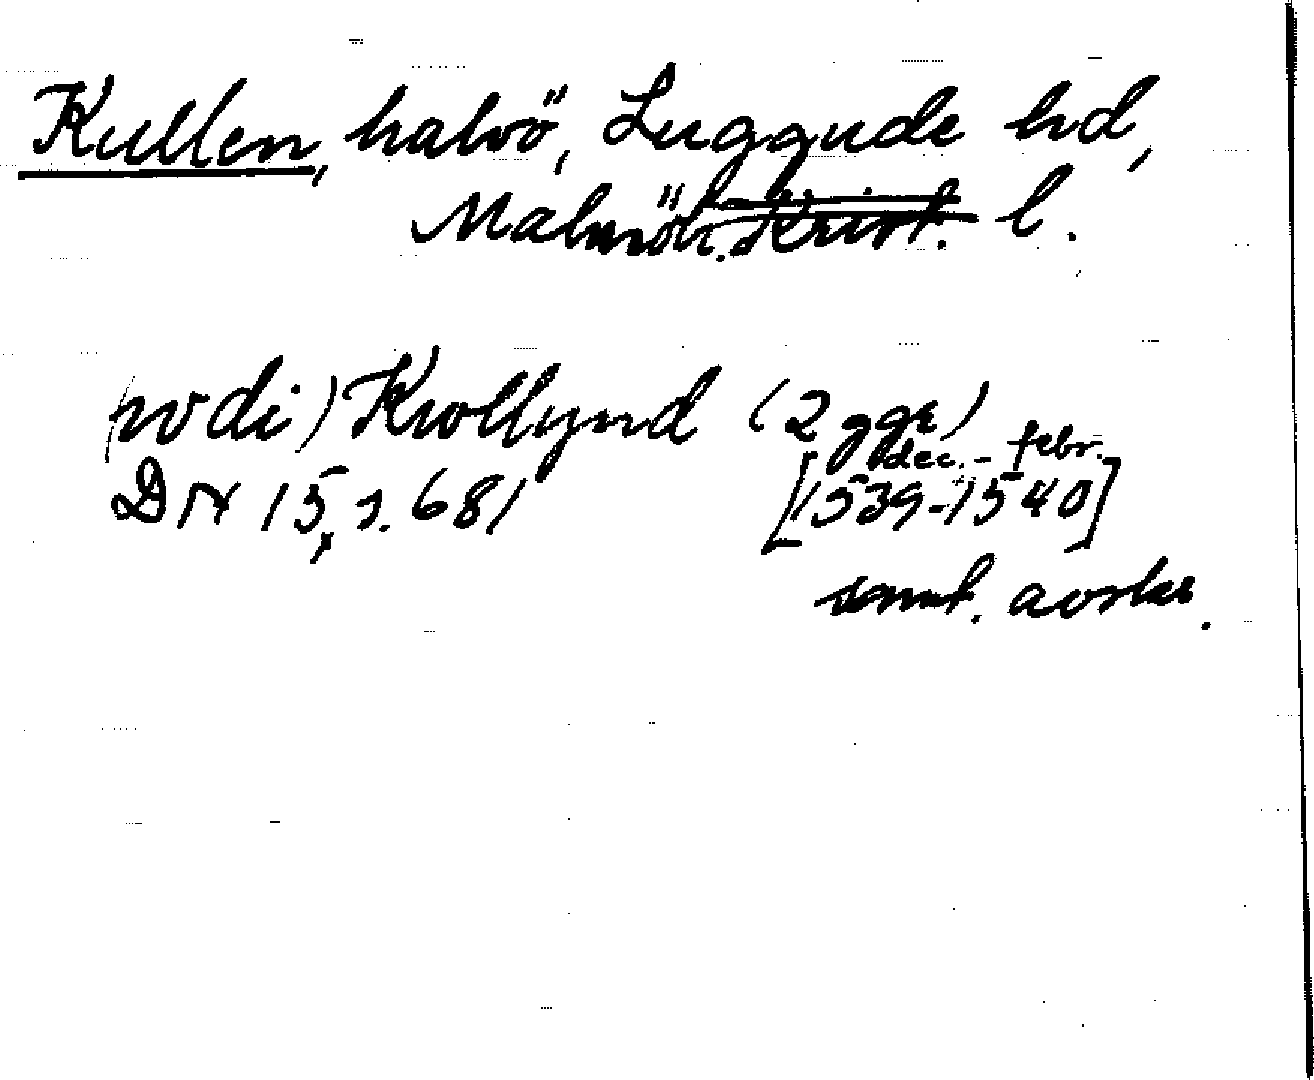 Kullen, halvö, Luggude hd,
Malmöh. Krist. l.
(wdi) Kwllynd (2 ggr)
DN 15, s. 681 [dec. - febr. 1539-1540]
samt. avskr.